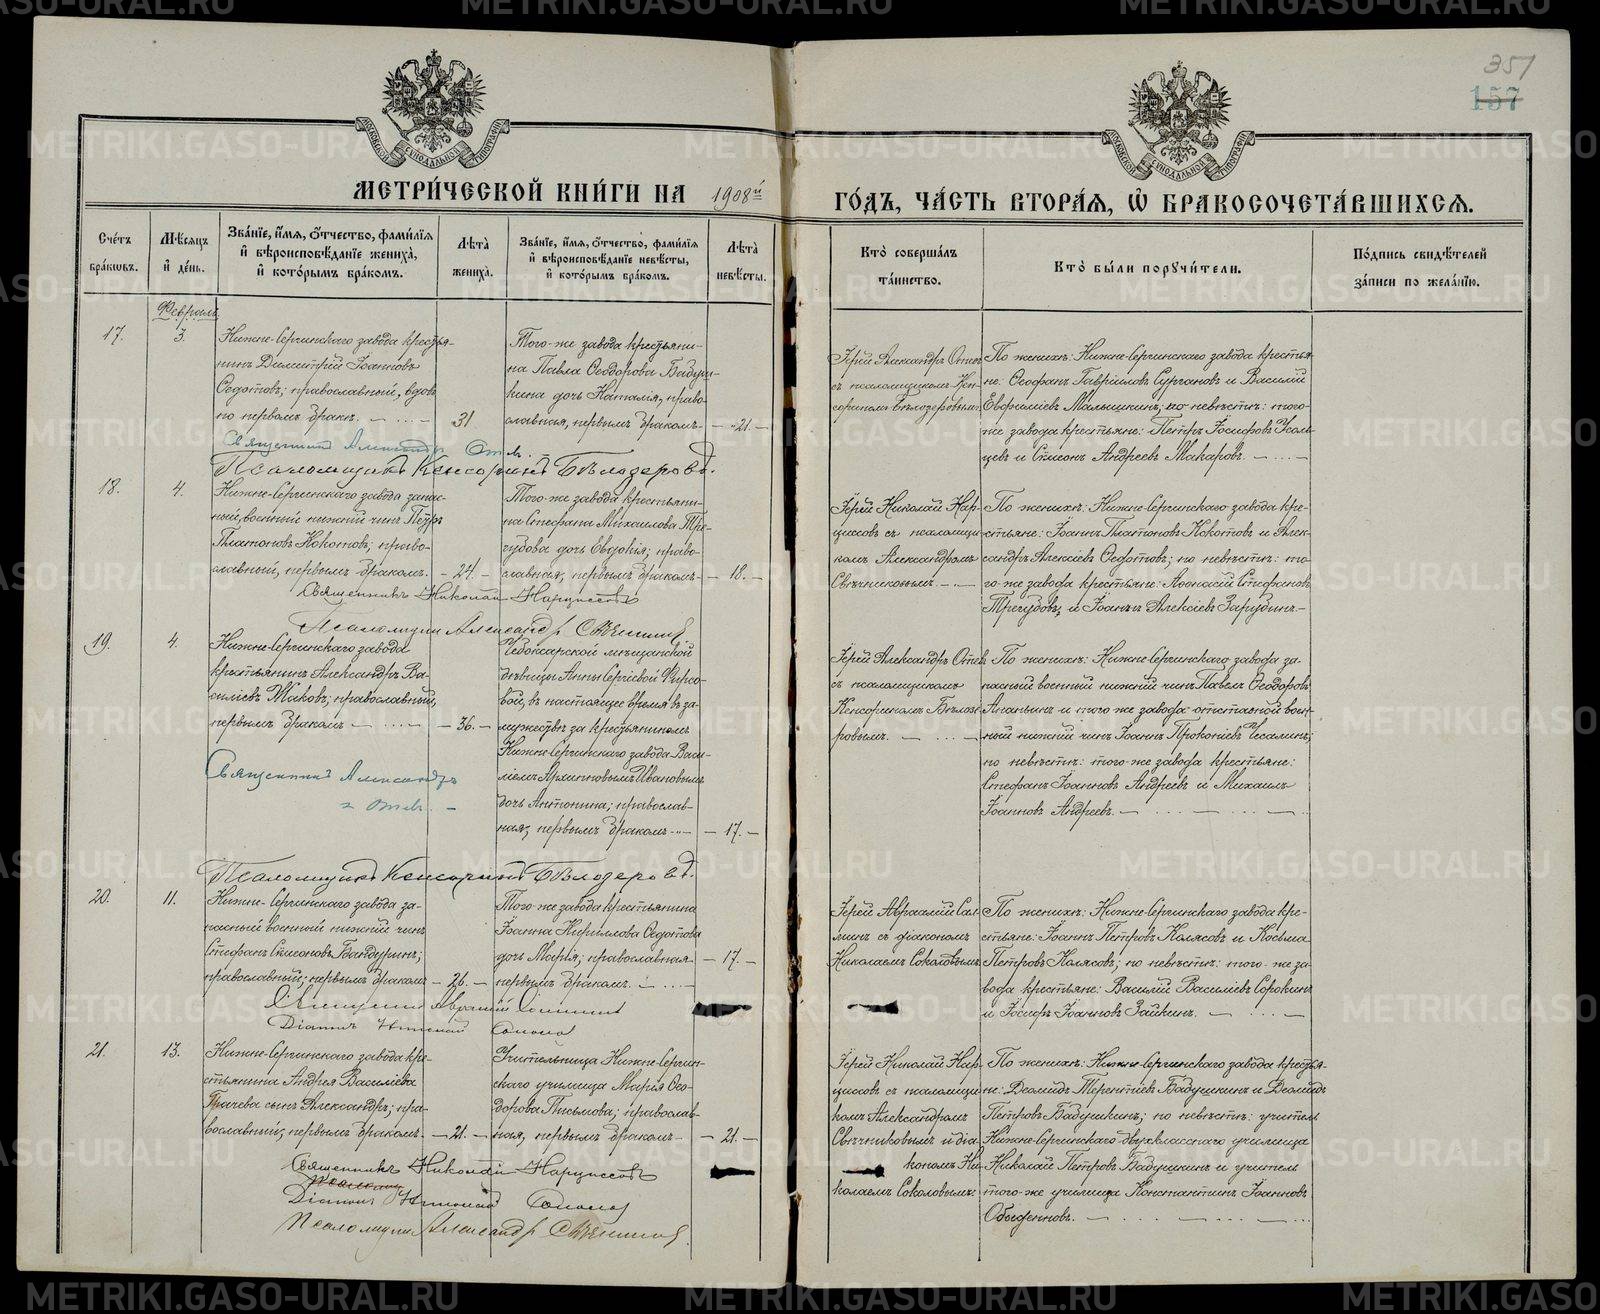 351
157
МЕТРИ́ЧЕСКОЙ КНИ́ГИ НА 1908й
ГО́ДЪ, ЧА́СТЬ ВТОРА́Я, Ѽ БРАКОСОЧЕТА́ВШИХСЯ.
Сче́тъ бра́ковъ.
Мѣ́сяцъ и҆ де́нь.
Зва́нїе, и҆́мя, ѻ҆́тчество, фами́лїя и҆ вѣроисповѣ́данїе жениха̀, и҆ кото́рымъ бра́комъ.
Лѣ́та жениха̀.
Зва́нїе, и҆́мя, ѻ҆́тчество, фами́лїя и҆ вѣроисповѣ́данїе невѣ́сты, и҆ кото́рымъ бра́комъ.
Лѣ́та невѣ́сты.
Кто̀ соверша́лъ та́инство.
Кто̀ бы́ли порꙋчи́тели.
По́дпись свидѣ́телей за́писи по жела́нїю.
Февраль
17.
3.
Нижне-Сергинскаго завода крестья-
нинъ Димитрій Іоанновъ
Ѳедотовъ; православный, вдовъ
по первомъ бракѣ.
31
Того-же завода крестьяни-
на Павла Ѳеодорова Бадуш-
кина дочь Наталія, право-
славная, первымъ бракомъ
21.
Іерей Александръ Отев
съ псаломщикомъ Кен-
сориномъ Бѣлозеровымъ
По женихѣ: Нижне-Сергинскаго завода крестья-
не: Ѳеофанъ Гавріиловъ Сургановъ и Василій
Евфиміевъ Малышкинъ; по невѣстѣ: того-
же завода крестьяне: Петръ Іосифовъ Усоль-
цевъ и Симеонъ Андреевъ Макаровъ.
Священникъ Александръ Отев.
Псаломщикъ Кенсоринъ Бѣлозеровъ.
18.
4.
Нижне-Сергинскаго завода запас-
ный военный нижній чинъ Петръ
Платоновъ Кокотовъ; право-
славный, первымъ бракомъ.
24.
Того-же завода крестьяни-
на Стефана Михаилова Тре-
гудова дочь Евдокія; право-
славная, первымъ бракомъ
18.
Іерей Николай Нар-
циссовъ съ псаломщи-
комъ Александромъ
Свѣчниковымъ.
По женихѣ: Нижне-Сергинскаго завода кре-
стьяне: Іоаннъ Платоновъ Кокотовъ и Алек-
сандръ Алексіевъ Ѳедотовъ; по невѣстѣ: то-
го-же завода крестьяне: Аѳанасій Стефановъ
Трегудовъ, и Іоаннъ Алексіевъ Зарудинъ.
Священникъ Николай Нарциссовъ
Псаломщикъ Александръ Свѣчниковъ.
19.
4.
Нижне-Сергинскаго завода
крестьянинъ Александръ Ва-
силіевъ Жаковъ; православный,
первымъ бракомъ
36.
Чебоксарской мѣщанской
дѣвицы Анны Сергіевой Фирсо-
вой, въ настоящее время въ за-
мужествѣ за крестьяниномъ
Нижне-Сергинскаго завода Васи-
ліемъ Архиповымъ Ивановымъ
дочь Антонина; православ-
ная, первымъ бракомъ
17.
Іерей Александръ Отев
съ псаломщикомъ
Кенсориномъ Бѣлозе-
ровымъ.
По женихѣ: Нижне-Сергинскаго завода за-
пасный военный нижній чинъ Павелъ Ѳеодоровъ
Ананьинъ и того же завода отставной воен-
ный нижній чинъ Іоаннъ Прокопіевъ Чесалинъ;
по невѣстѣ: того-же завода крестьяне:
Стефанъ Іоанновъ Андреевъ и Михаилъ
Іоанновъ Андреевъ.
Священникъ Александръ
Отев.
Псаломщикъ Кенсоринъ Бѣлозеровъ.
20.
11.
Нижне-Сергинскаго завода за-
пасный военный нижній чинъ
Стефанъ Симеоновъ Бандуринъ;
православный; первымъ бракомъ
26.
Того-же завода крестьянина
Іоанна Кириллова Ѳедотова
дочь Марія; православная
первымъ бракомъ.
17.
Іерей Авраамій Сал-
минъ съ діакономъ
Николаемъ Соколовымъ
По женихѣ: Нижне-Сергинскаго завода кре-
стьяне: Іоаннъ Петровъ Колясовъ и Косьма
Петровъ Колясовъ; по невѣстѣ: того-же за-
вода крестьяне: Василій Василіевъ Сорокинъ
и Іосифъ Іоанновъ Зайкинъ.
Священникъ Авраамій Салминъ
Діаконъ Николай Соколовъ
21.
13.
Нижне-Сергинскаго завода кре-
стьянина Андрея Василіева
Ткачева сынъ Александръ; пра-
вославный; первымъ бракомъ.
21.
Учительница Нижне-Сергин-
скаго училища Марія Ѳео-
дорова Письмова; православ-
ная, первымъ бракомъ
21.
Іерей Николай Нар-
циссовъ съ псаломщи-
комъ Александромъ
Свѣчниковымъ и діа-
кономъ Ни-
колаемъ Соколовымъ.
По женихѣ: Нижне-Сергинскаго завода крестья-
не: Діомидъ Терентіевъ Бадушкинъ и Діомидъ
Петровъ Бадушкинъ; по невѣстѣ: учитель
Нижне-Сергинскаго двухкласснаго училища
Николай Петровъ Бадушкинъ и учитель
того-же училища Константинъ Іоанновъ
Священникъ Николай Нарциссовъ
Діаконъ Николай Соколовъ
Псаломщикъ Александръ Свѣчниковъ.
METRIKI.GASO-URAL.RU